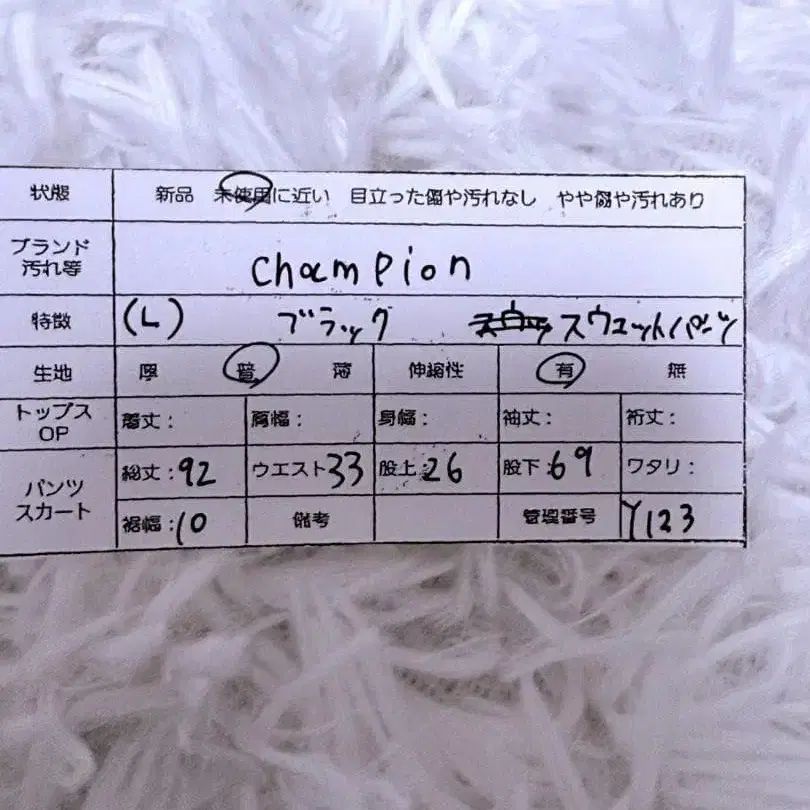 状態 新品 未使用に近い 目立った傷や汚れなし やや傷や汚れあり
ブランド
汚れ等
Champion
特徴 (L) ブラック スウェットパンツ
生地 厚 普 薄 伸縮性 有 無
トップス
OP
着丈: 肩幅: 身幅: 袖丈: 裄丈:
パンツ
スカート
総丈:92 ウエスト33 股上:26 股下:69 ワタリ:
裾幅:10 備考 管理番号 Y123